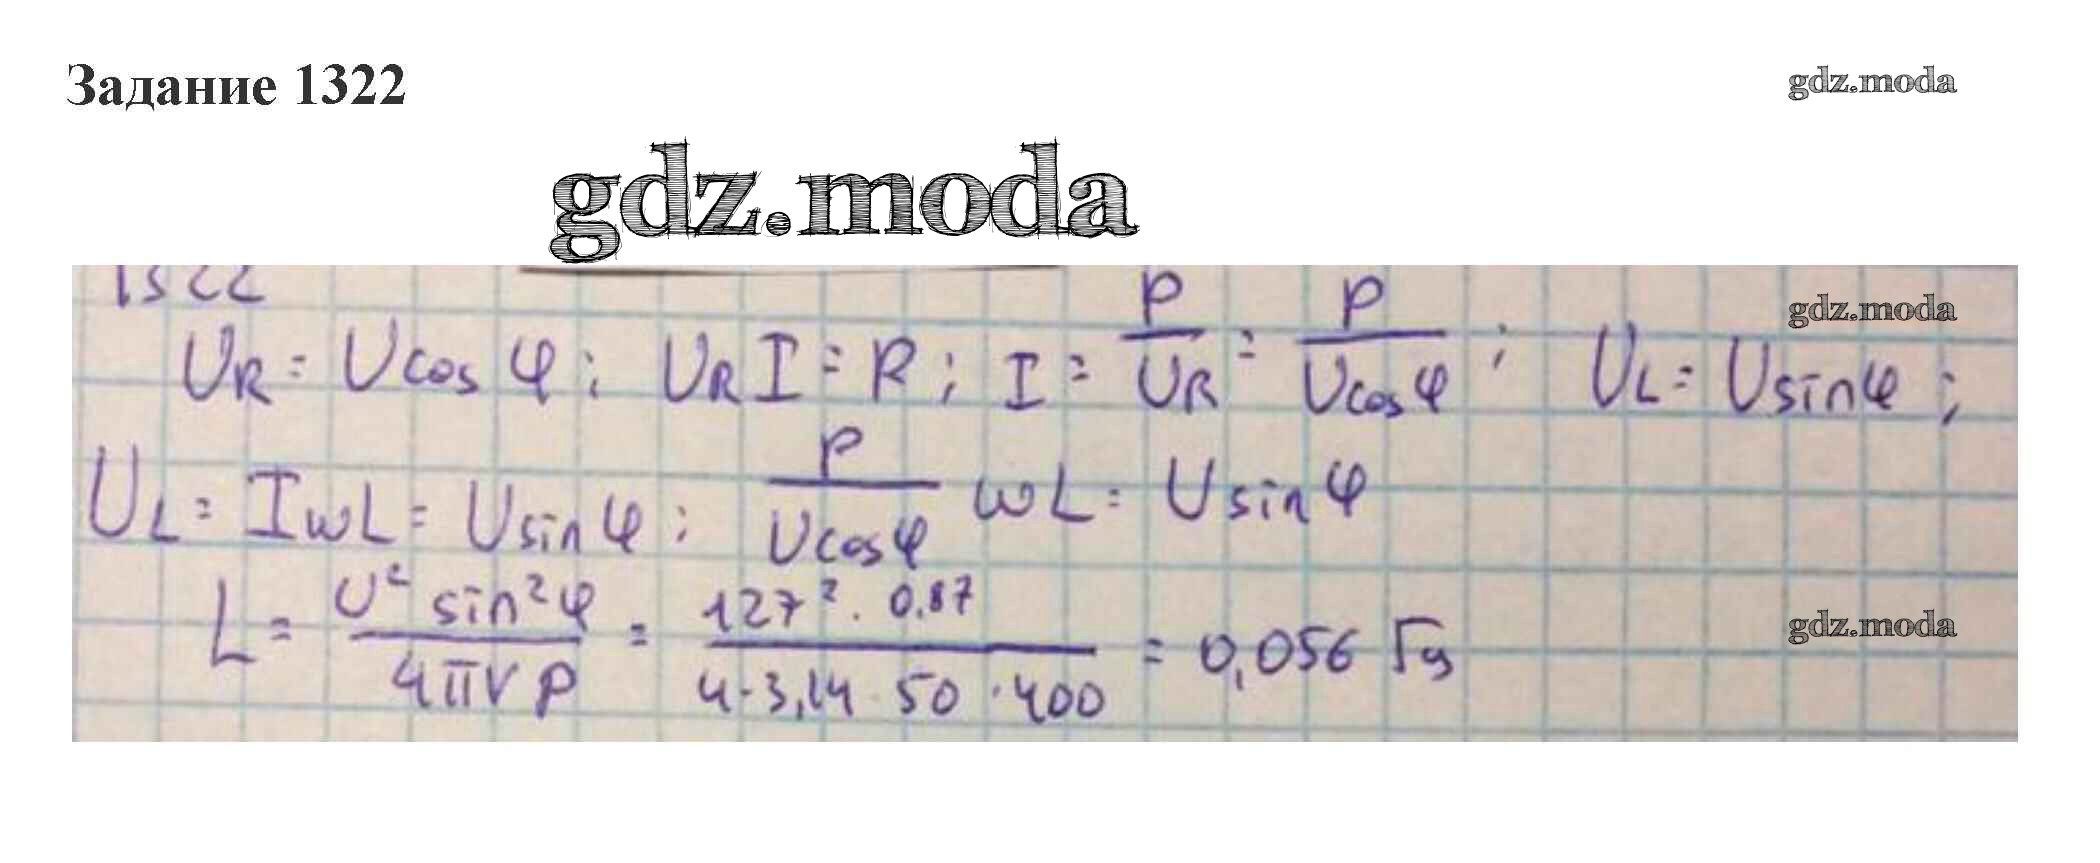 Задание 1322
gdz.moda
gdz.moda
1322
gdz.moda
U_R = U cos φ; U_R I = P; I = P/U_R = P/(U cos φ); U_L = U sin φ;
U_L = IωL = U sin φ; P/(U cos φ) ωL = U sin φ
L = U² sin² φ/(4πνP) = 127² · 0.87/(4·3,14·50·400) = 0,056 Гн
gdz.moda